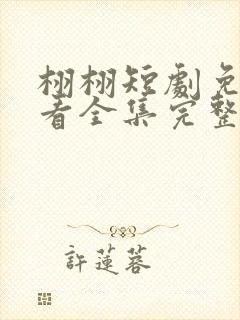 栩栩短劇免
看全集完整
許蓮蓉